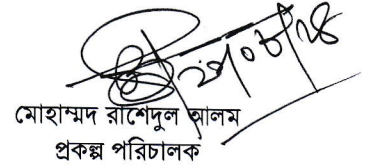 ২৯/০৮/২৪
মোহাম্মদ রাশেদুল আলম
প্রকল্প পরিচালক